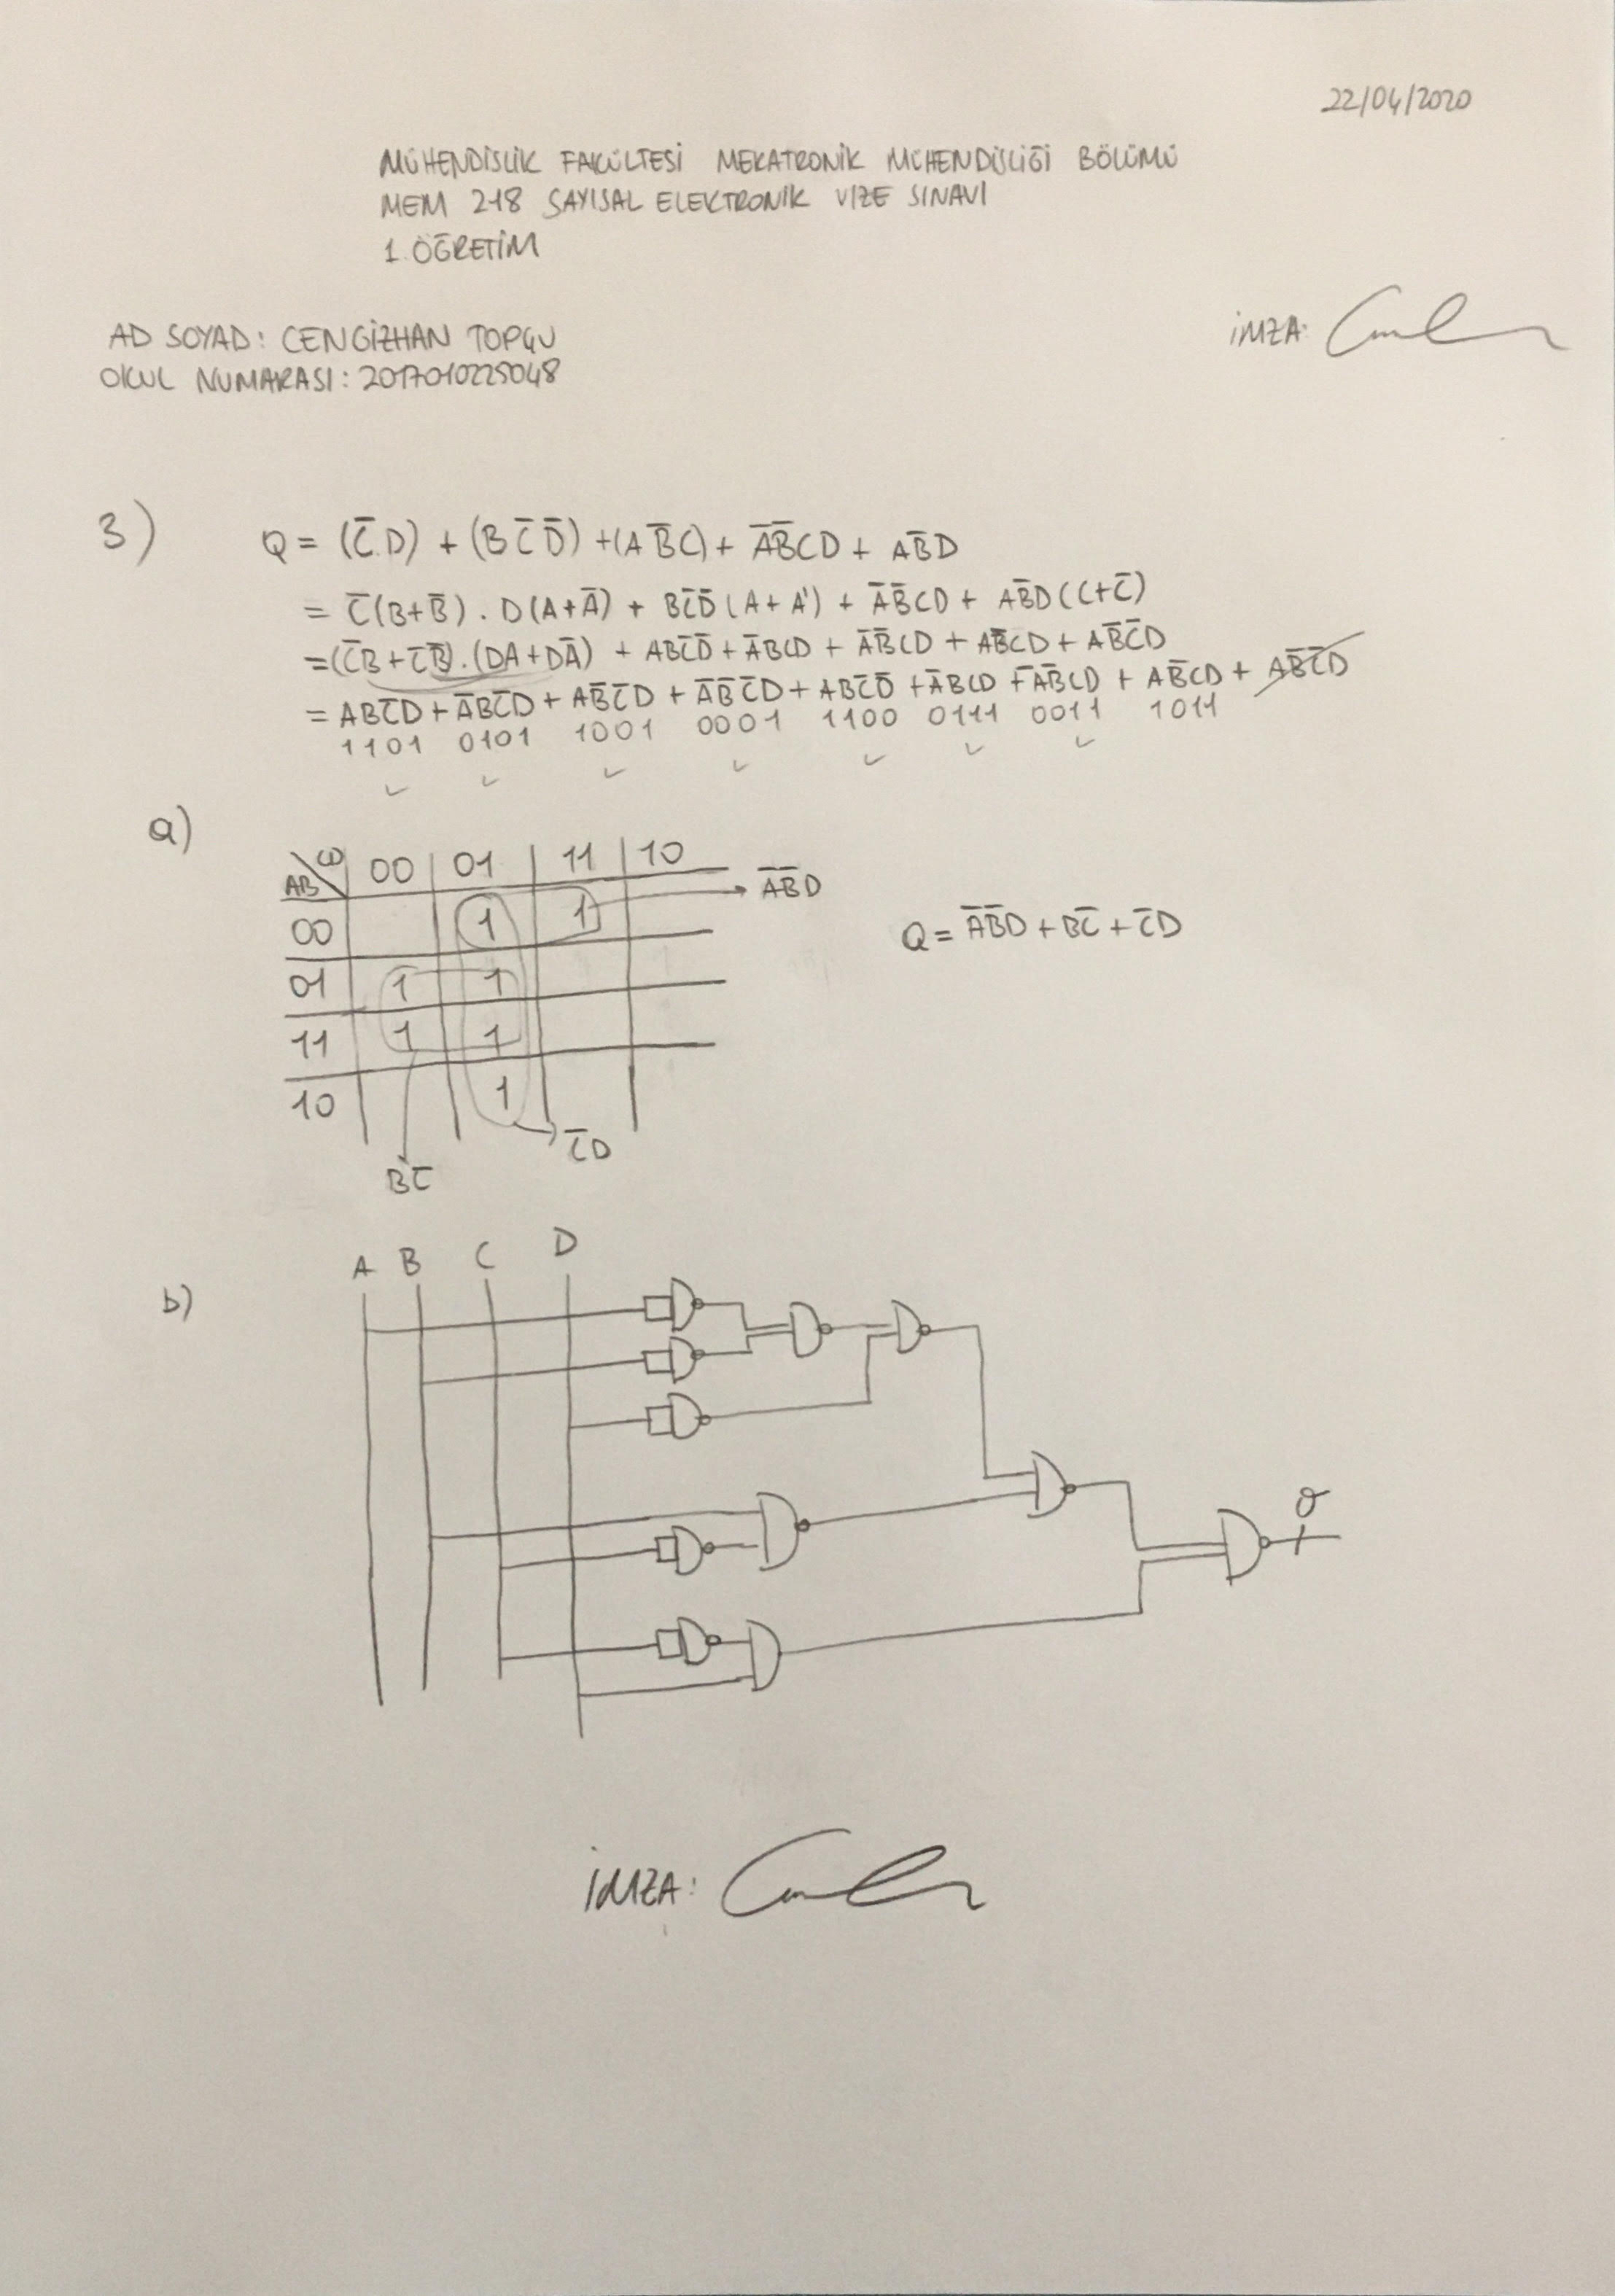 22/04/2020
MÜHENDİSLİK FAKÜLTESİ MEKATRONİK MÜHENDİSLİĞİ BÖLÜMÜ
MEM 218 SAYISAL ELEKTRONİK VIZE SINAVI
1. ÖĞRETİM
AD SOYAD: CENGİZHAN TOPÇU
İMZA:
OKUL NUMARASI: 2017010225048
3)
Q = (C̅.D) + (B C̅ D̅) + (A B̅ C) + A̅B̅CD + AB̅D
= C̅(B+B̅) . D(A+A̅) + BC̅D̅(A+A') + A̅B̅CD + AB̅D(C+C̅)
=(C̅B+C̅B̅).(DA+DA̅) + ABC̅D̅ + A̅BCD + A̅B̅CD + AB̅CD + AB̅C̅D
= ABC̅D + A̅BC̅D + AB̅C̅D + A̅B̅C̅D + ABC̅D̅ + A̅BCD + A̅B̅CD + AB̅CD + AB̅C̅D
1101 0101 1001 0001 1100 0111 0011 1011
a)
CD 00 01 11 10
AB
A̅B̅D
00 1 1
Q = A̅B̅D + BC̅ + C̅D
01 1 1
11 1 1
10 1
C̅D
BC̅
A B C D
b)
İMZA: